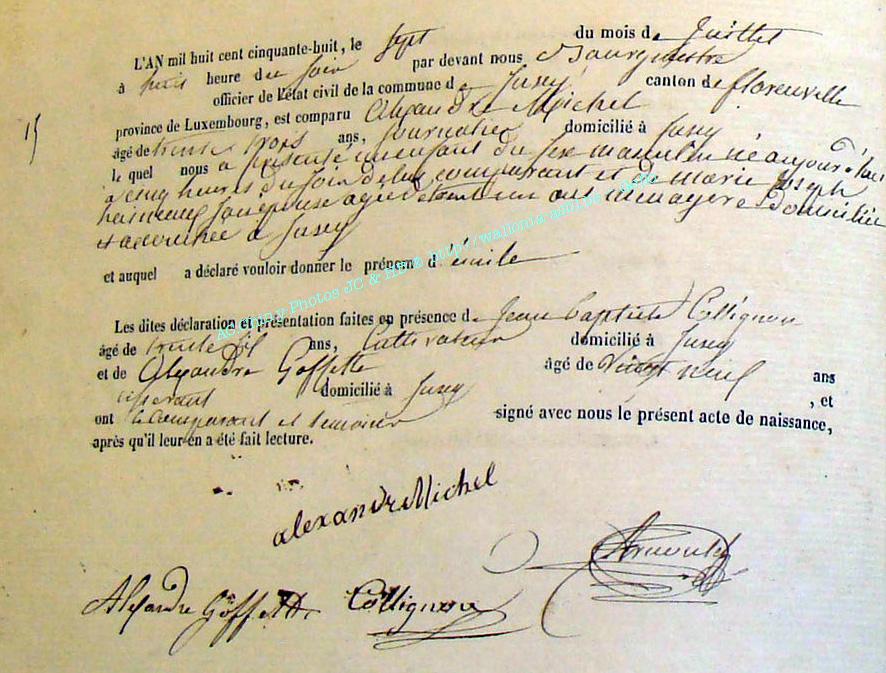 L'AN mil huit cent cinquante-huit, le sept du mois de Juillet
à huit heure du soir par devant nous Bourgmestre
officier de l'état civil de la commune d Jusey canton de florenville
15
province de Luxembourg, est comparu Alexandre Michel
âgé de trente trois ans, journalier domicilié à Jusey
le quel nous a présenté un enfant du sexe masculin né aujourd'hui
a cinq heures du soir de lui comparant et de marie joseph
son épouse agée de trente un ans menagere domiciliée
et accouchée a Jusey
et auquel a déclaré vouloir donner le prénom d'émile
Les dites déclaration et présentation faites en présence de Jean baptiste Collignon
âgé de trente six ans, Cultivateur domicilié à Jusey
et de Alexandre Goffette âgé de vingt neuf ans
domicilié à Jusey , et
ont le comparant et temoins signé avec nous le présent acte de naissance,
après qu'il leur en a été fait lecture.
alexandre Michel
Alexandre Goffette Collignon
Photos JC & http://wallonia